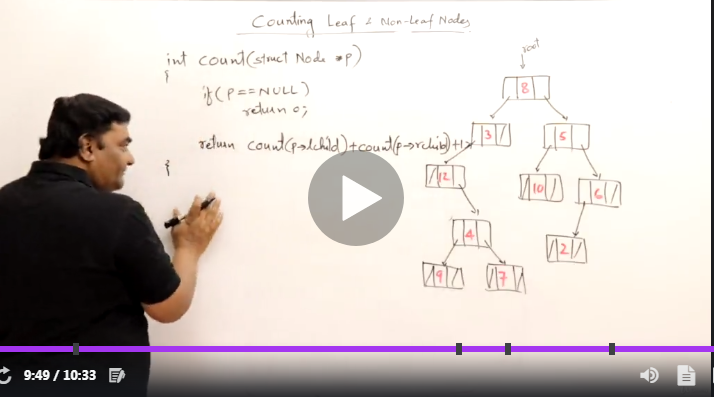 Counting Leaf & Non-Leaf Nodes
int count(struct Node *p)
{
if(P==NULL)
return 0;
return count(p→lchild)+count(p→rchild)+1;
}
root
8
3
5
12
10
6
4
2
9
7
9:49 / 10:33